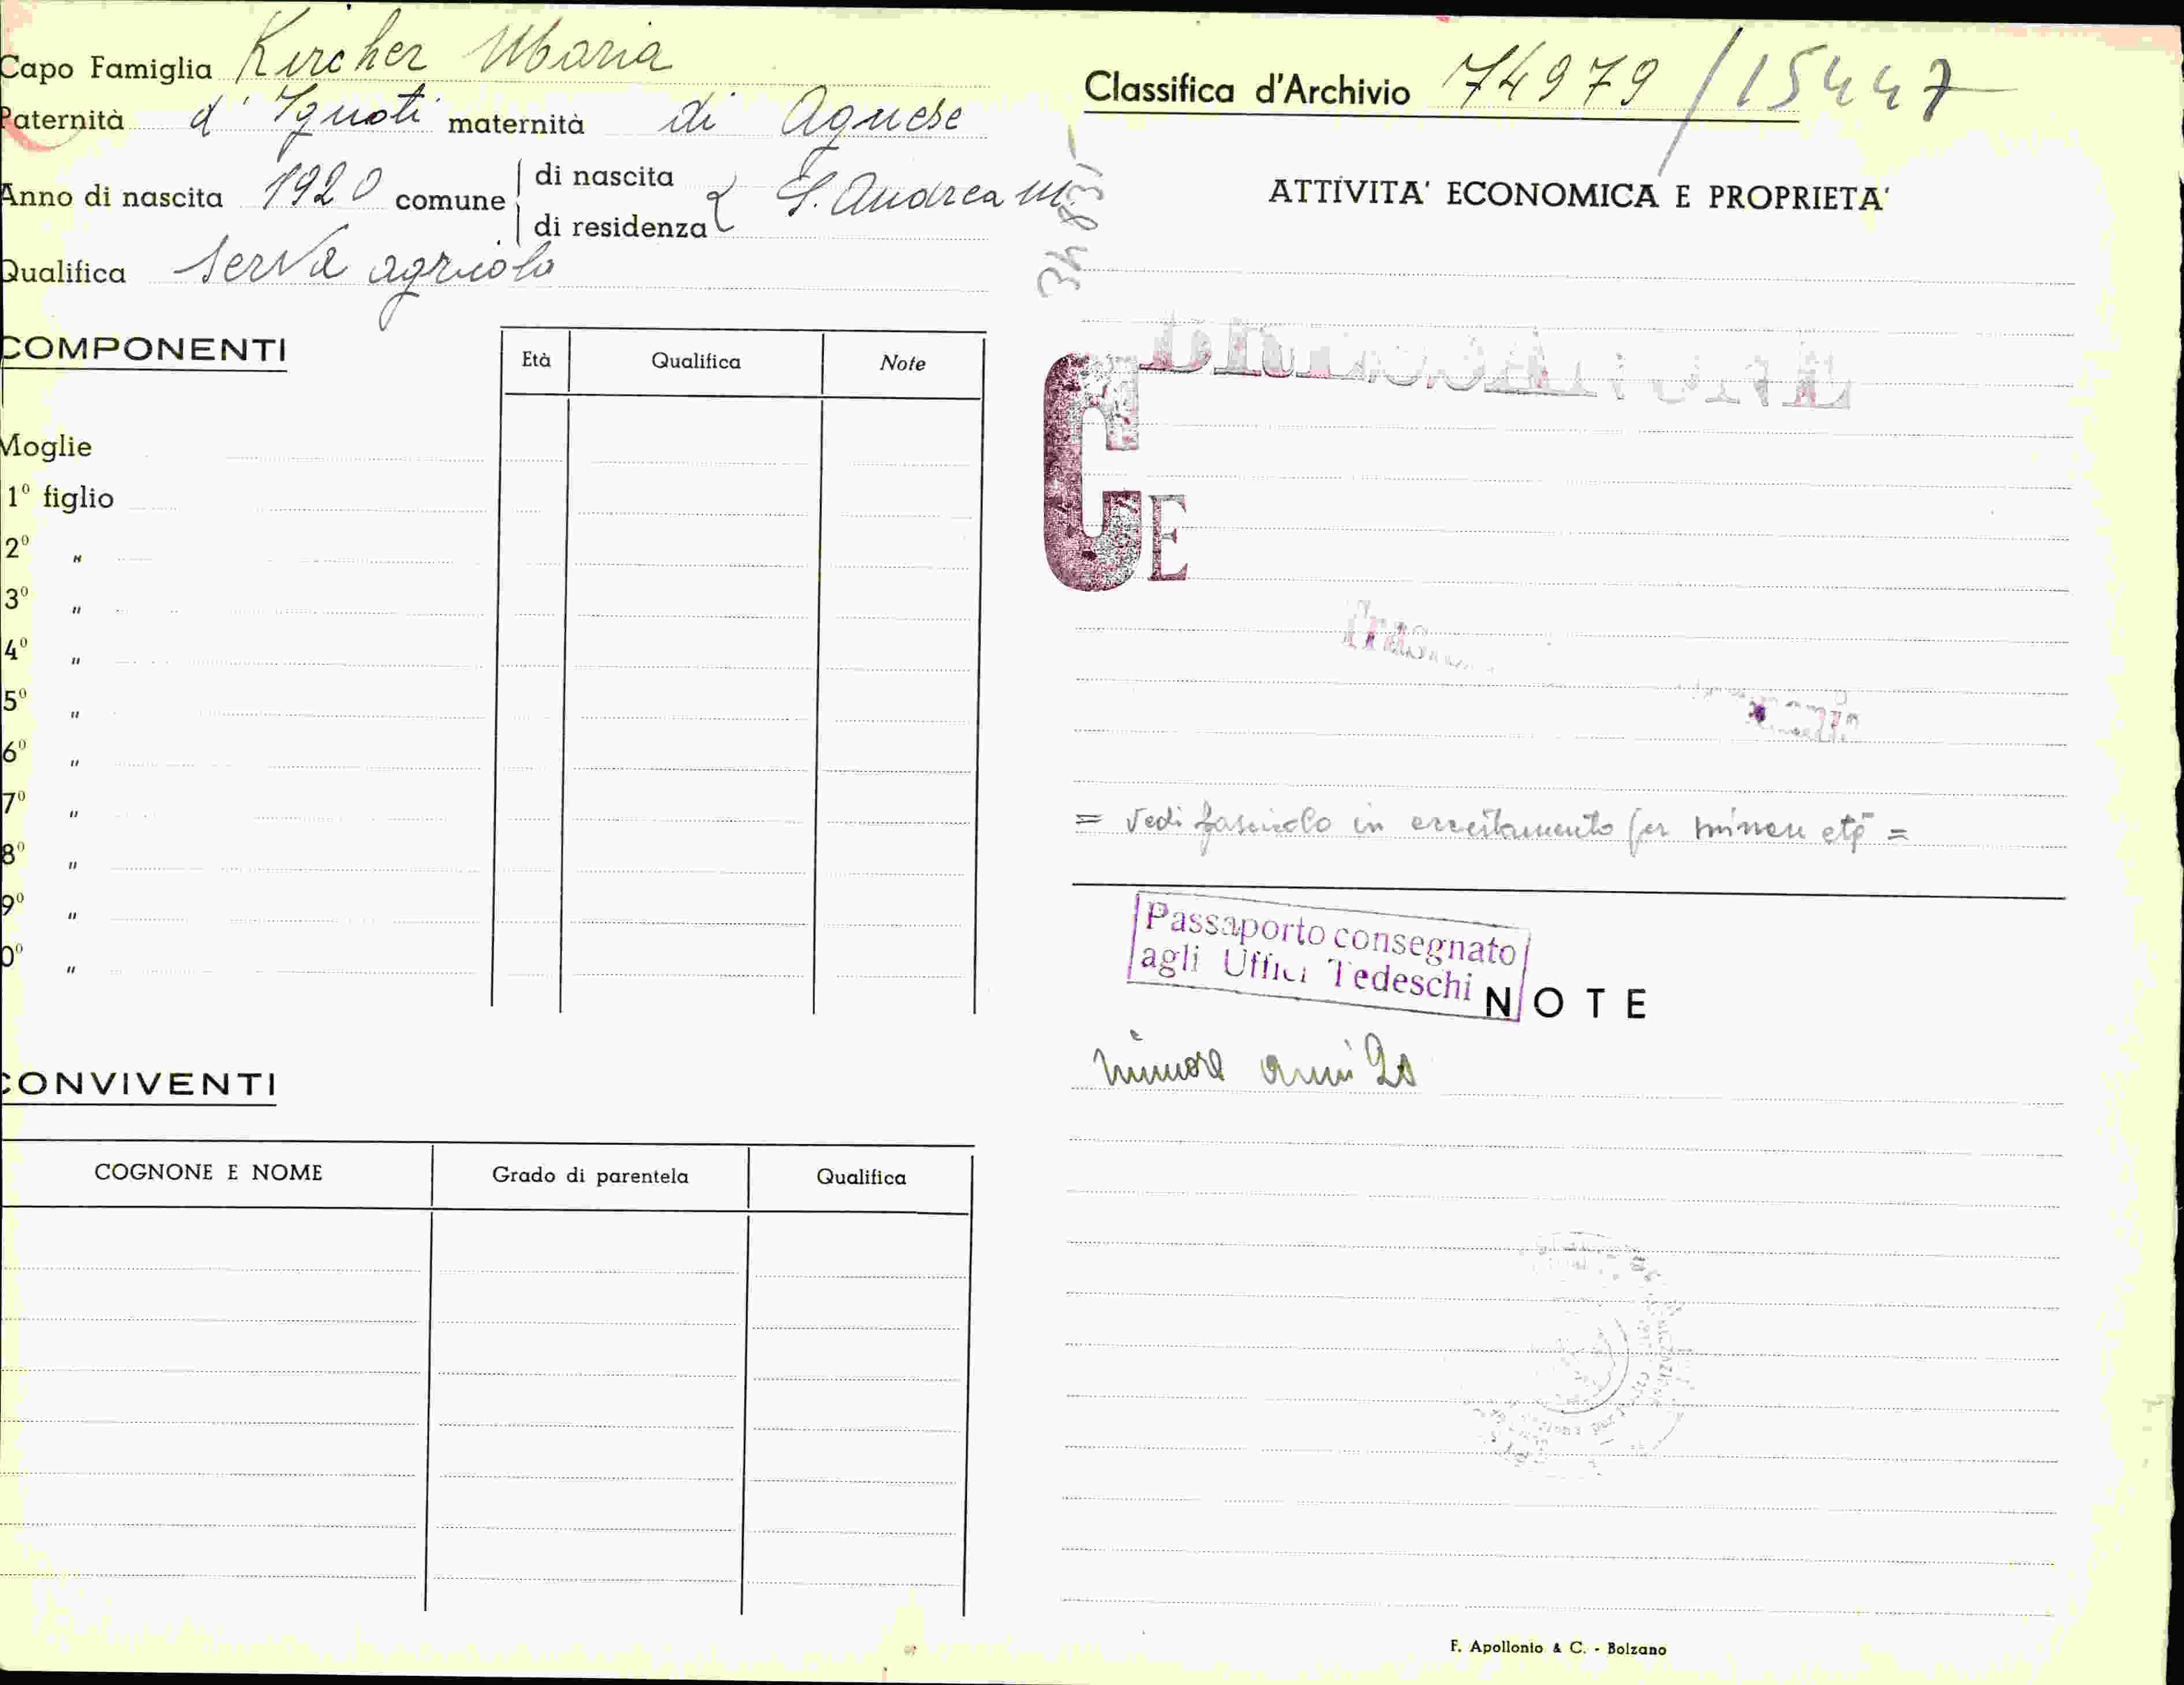 Capo Famiglia Kircher Maria
Paternità d' Ignoti maternità di Agnese
Anno di nascita 1920 comune di nascita S. Andrea M.
di residenza
Qualifica serva agricola
COMPONENTI
Età Qualifica Note
Moglie
1º figlio
2º "
3º "
4º "
5º "
6º "
7º "
8º "
9º "
0º "
CONVIVENTI
COGNONE E NOME Grado di parentela Qualifica
Classifica d'Archivio 74979 / 15447
34831
ATTIVITA' ECONOMICA E PROPRIETA'
C E
= Vedi fascicolo in accertamento per minore età =
Passaporto consegnato
agli Uffici Tedeschi
NOTE
minore anni 21
F. Apollonio & C. - Bolzano